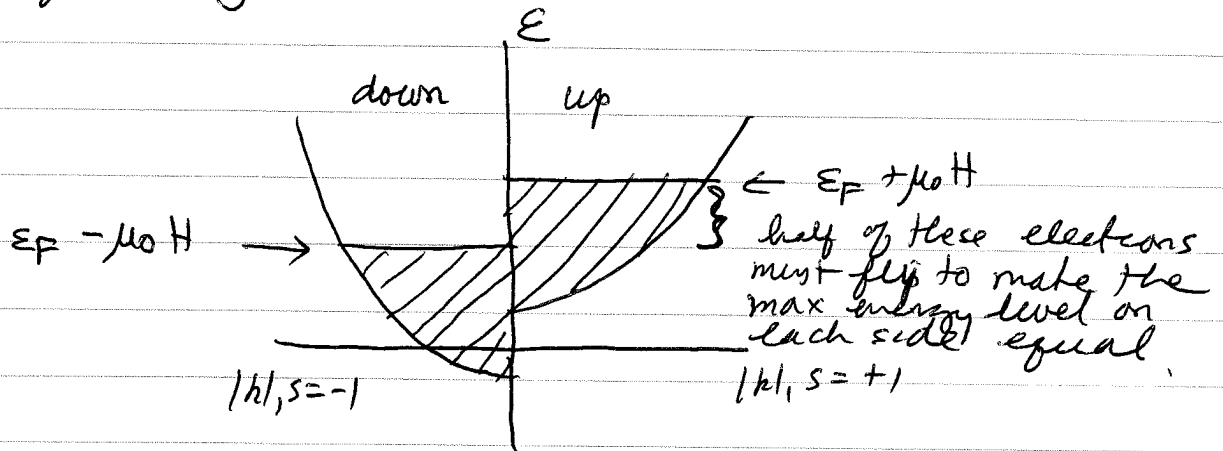 ε
down up
← εF + μ0 H
εF − μ0 H →
half of these electrons
must flip to make the
max energy level on
each side equal.
|k|, s = −1
|k|, s = +1